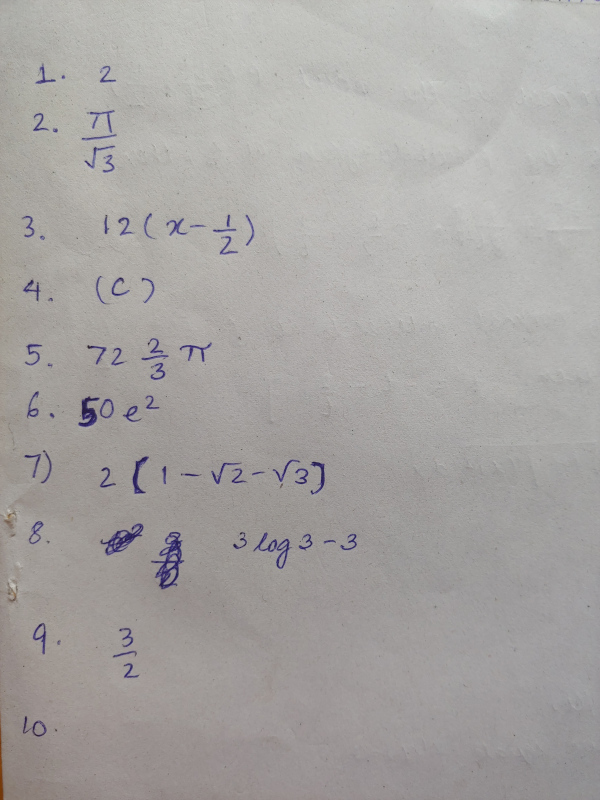 1. 2
2. π/√3
3. 12(x-1/2)
4. (C)
5. 72 2/3 π
6. 50e²
7) 2[1-√2-√3]
8. 3log3-3
9. 3/2
10.